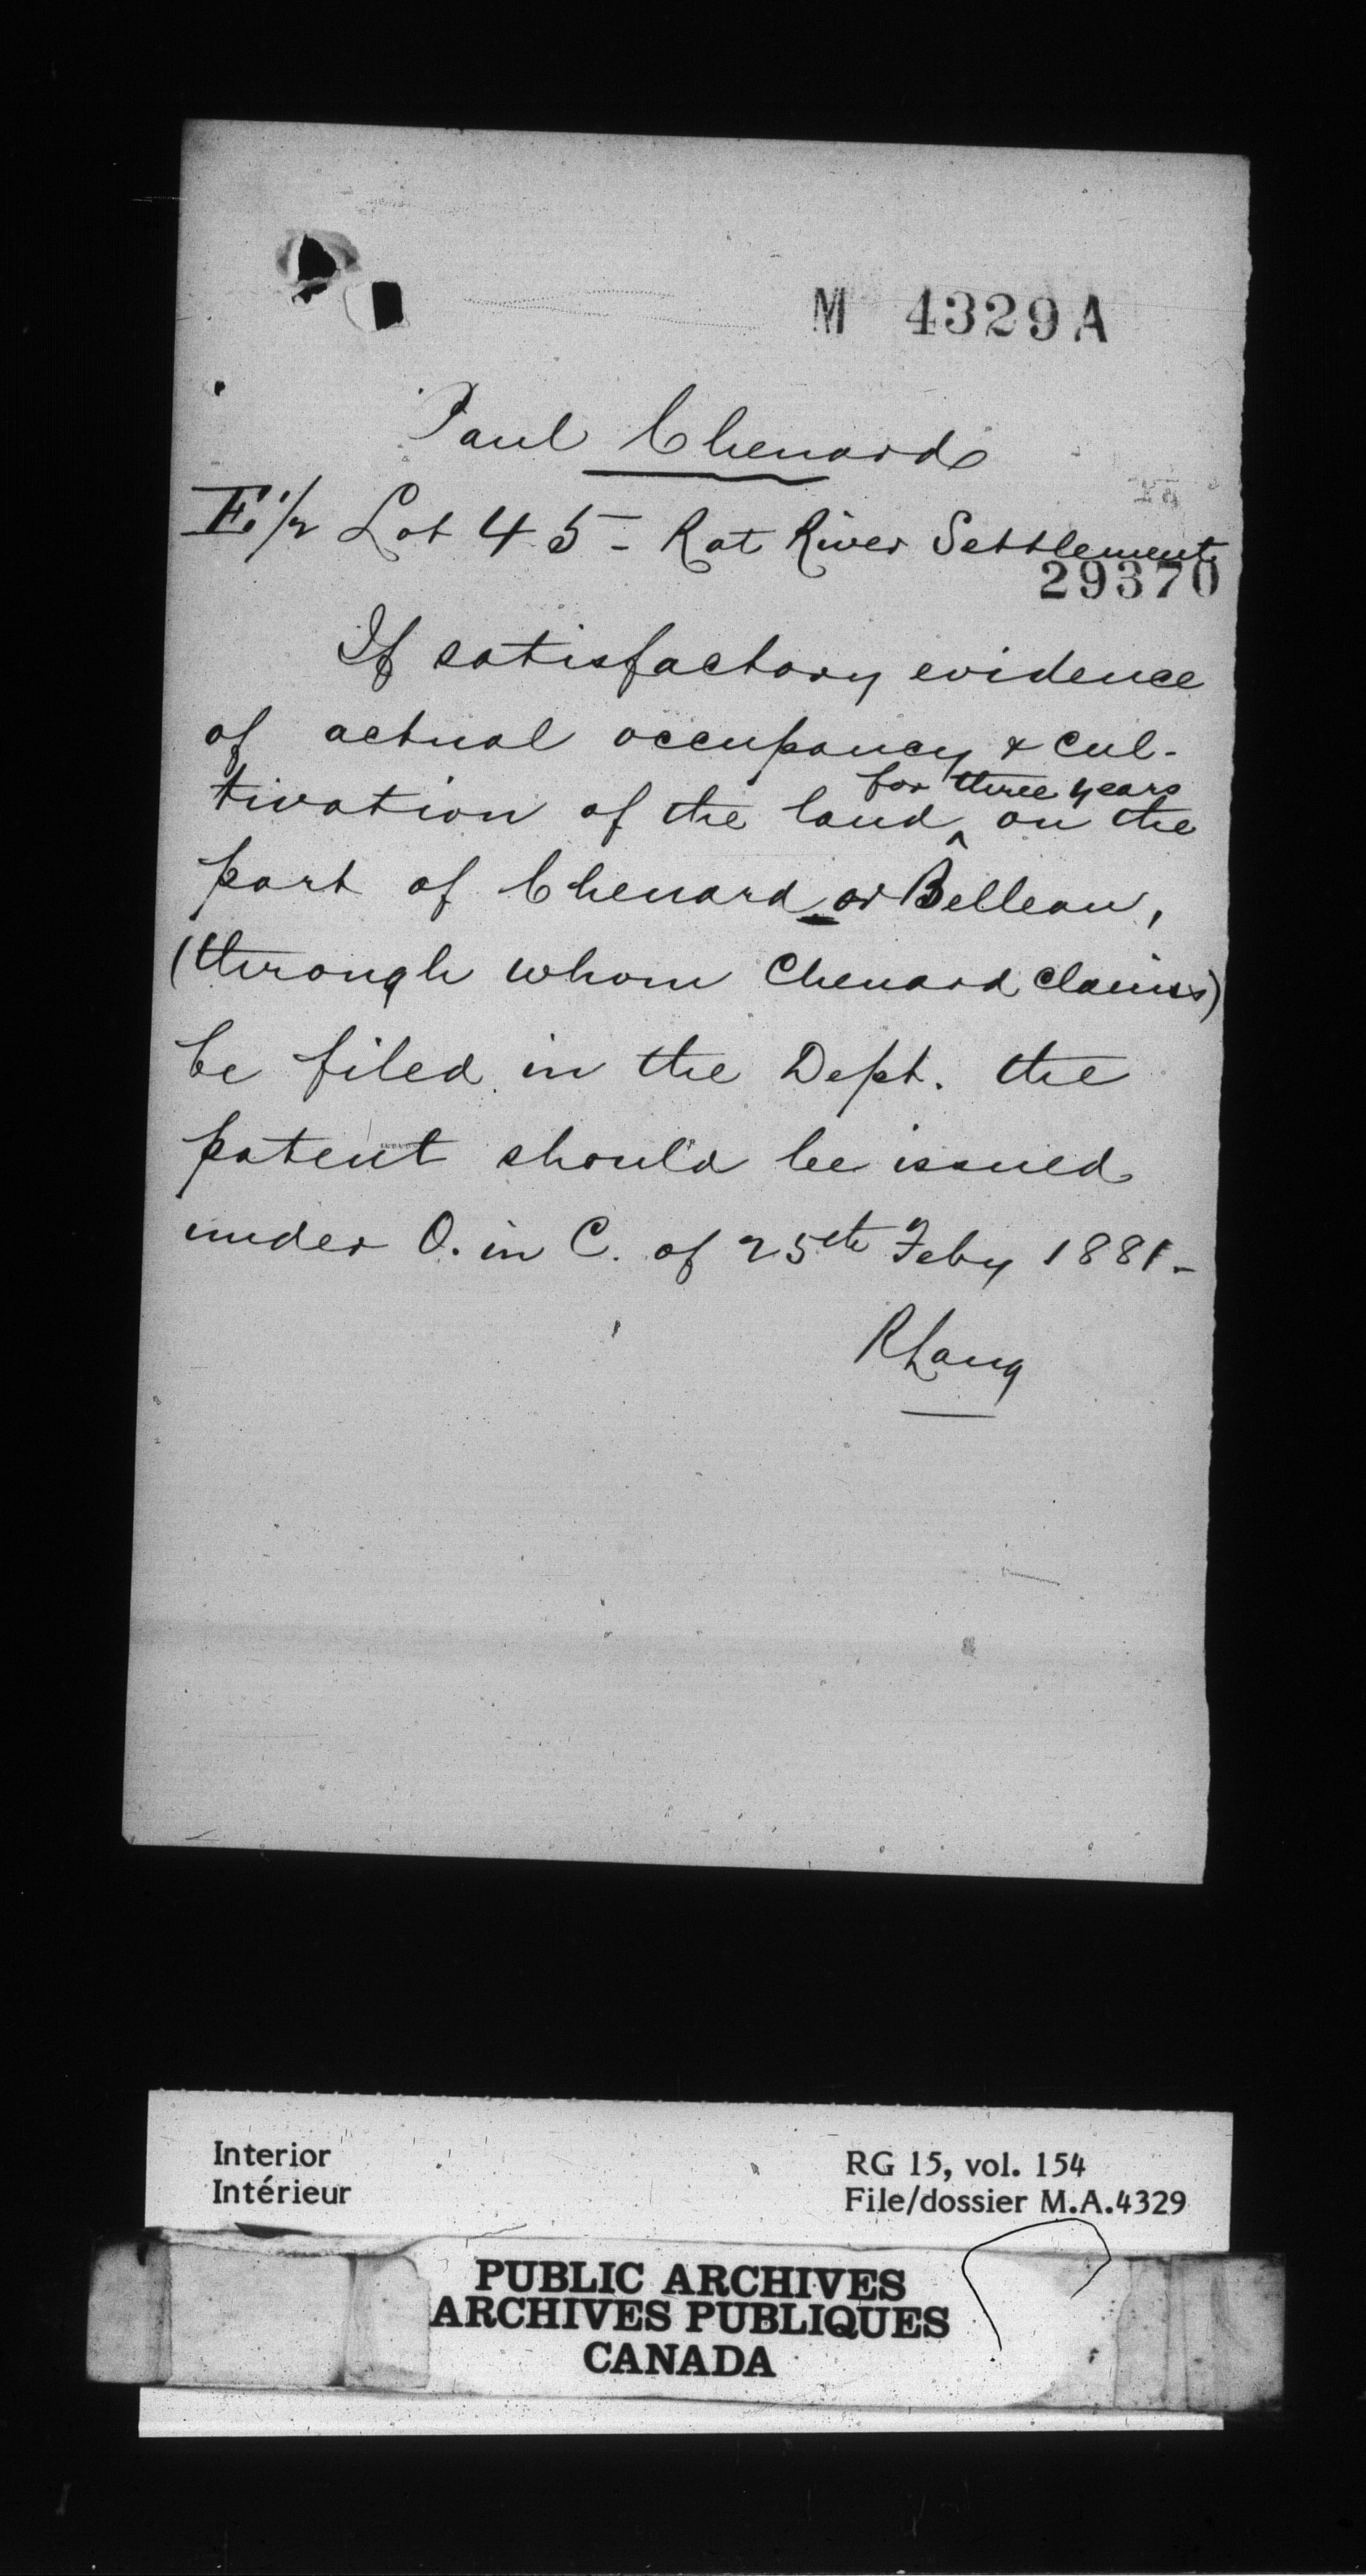 M 4329 A
Paul Chenard
E. 1/2 Lot 45 - Rat River Settlement
29370
If satisfactory evidence
of actual occupancy & cul-
for three years
tivation of the land ^ on the
part of Chenard or Belleau,
(through whom Chenard claims)
be filed in the Dept. the
patent should be issued
under O. in C. of 25th Feby 1881 -
R Lang
Interior
Intérieur
RG 15, vol. 154
File/dossier M.A.4329
PUBLIC ARCHIVES
ARCHIVES PUBLIQUES
CANADA